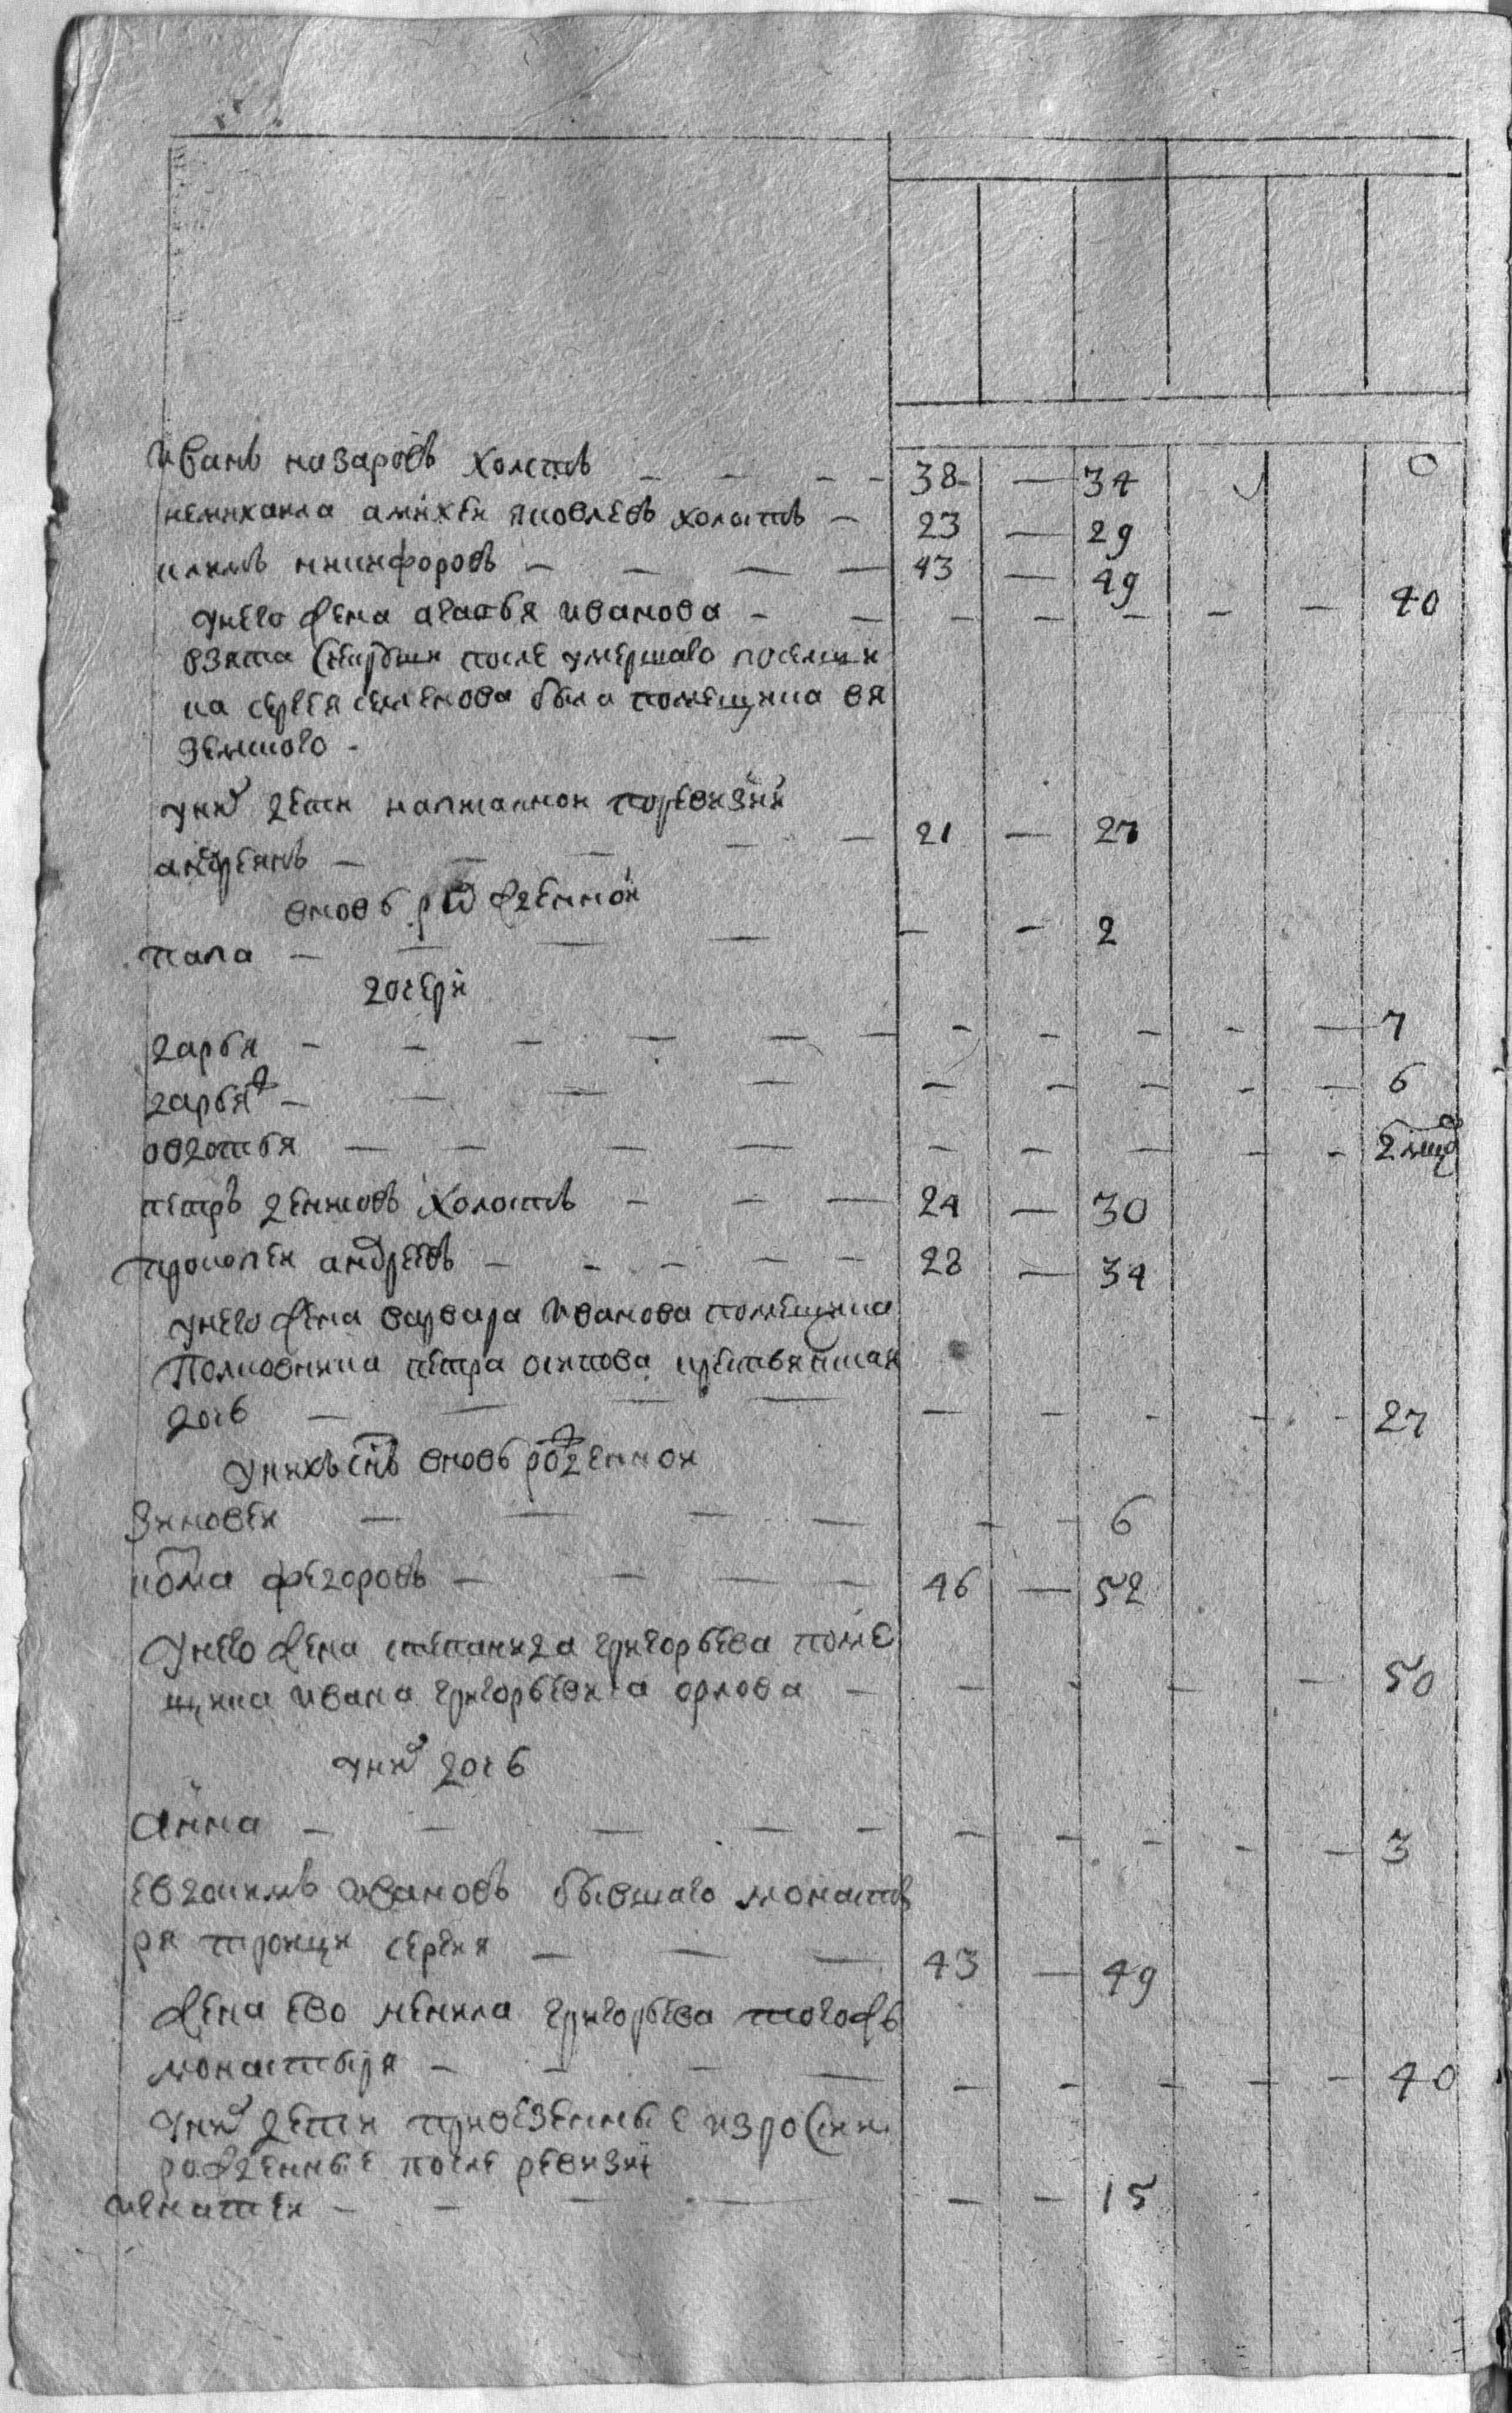 Иванъ назаровъ холстъ - - - - 38 - 34 0
аликей яковлевъ холостъ - 23 - 29
никифоровъ - - - - 43 - 49
унего жена агафья иванова - - - - - - - 40
взята после умершаго поселщи
ка сергея семенова была помещика вя
земского -
уних дети написанной поревизий
андреянъ - - - - - 21 - 27
вновь рожденной
папа - - - - - - 2
дочери
дарья - - - - - - - - - - - 7
дарья ж - - - - - - - - - 6
овдотья - - - - - - - - - 2 мцд
петръ денисовъ холостъ - - - 24 - 30
прокопей андреевъ - - - - - 28 - 34
унего жена варвара иванова помещика
Полковника петра осипова крестьянская
дочь - - - - - - - - - 27
унихъ снъ вновь рожденной
Зиновей - - - - - - 6
козма федоровъ - - - - 46 - 52
унего жена степанида григорьева поме
щика ивана григорьевича орлова - - - - - 50
уних дочь
Анна - - - - - - - - - - 3
евдокимъ ивановъ бывшаго монасты
ря троицы сергия - - - 43 - 49
жена ево григорьева тогожъ
монастыря - - - - - - - - - 40
уних дети привезенные изросии
рожденные после ревизий
игнатей - - - - - - 15